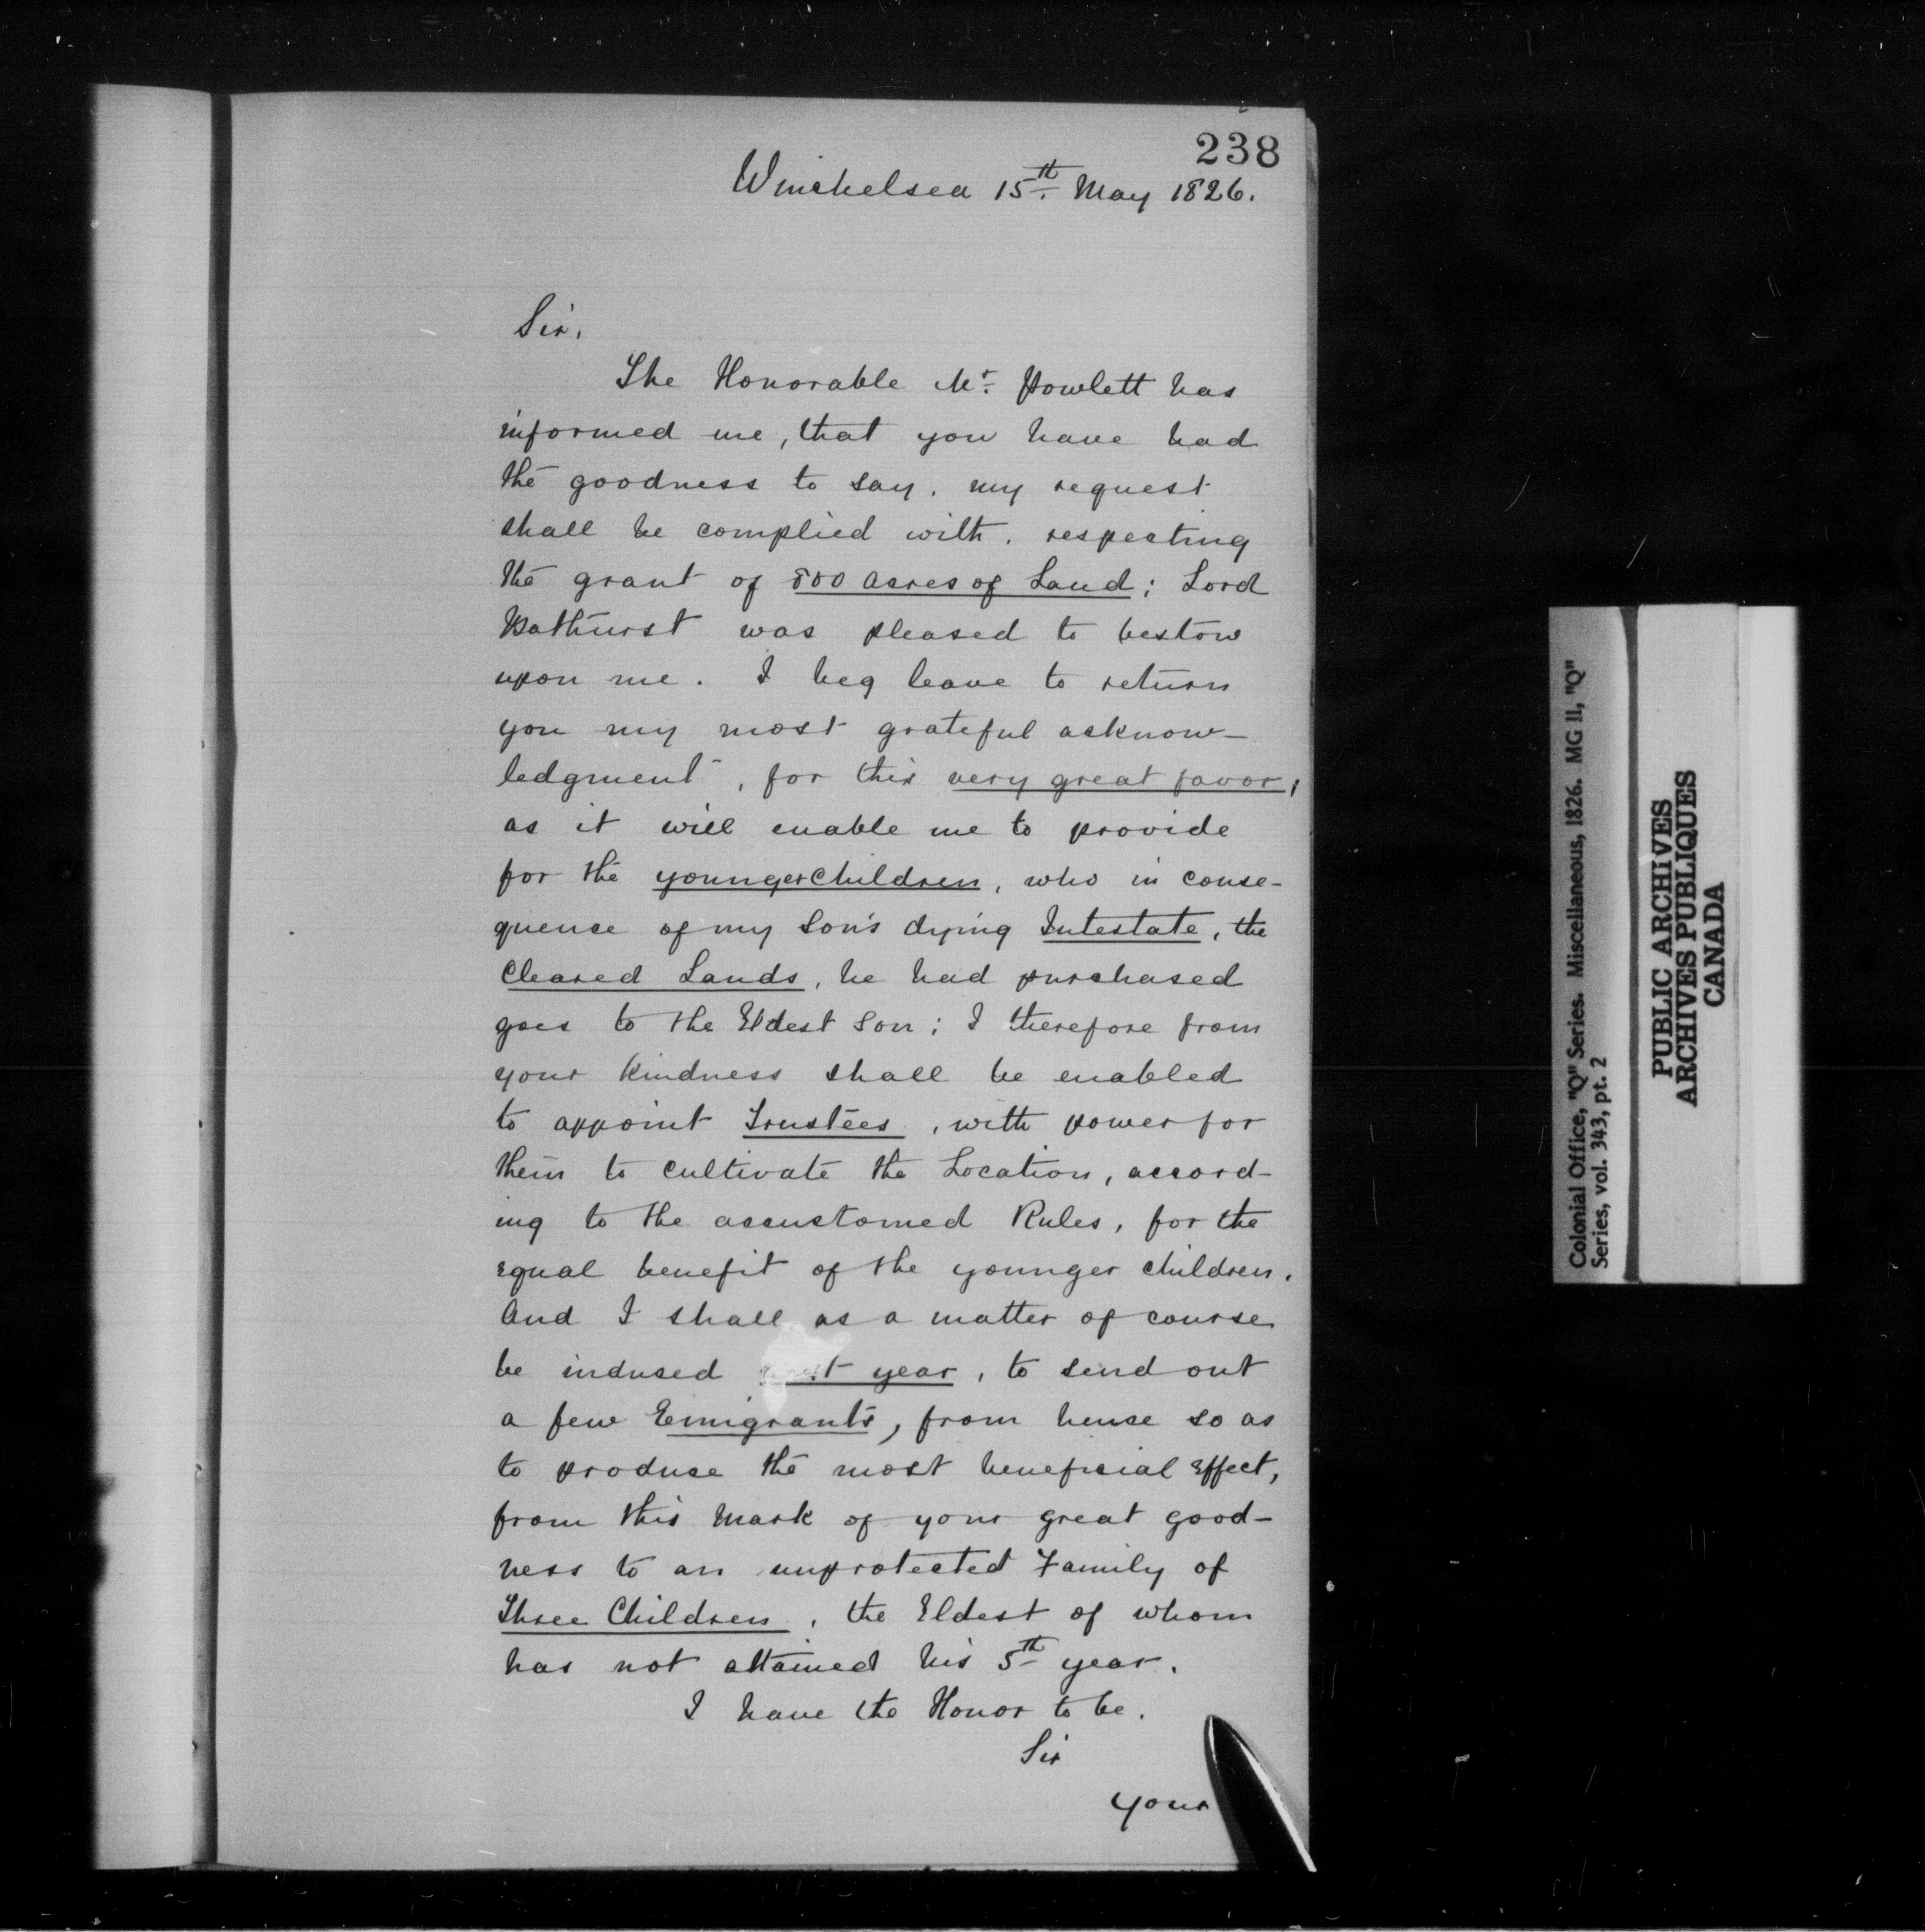 238
Winchelsea 15th. May 1826.
Sir,
The Honorable Mr. Powlett has
informed me, that you have had
the goodness to say, my request
shall be complied with, respecting
the grant of 800 acres of Land; Lord
Bathurst was pleased to bestow
upon me. I beg leave to return
you my most grateful acknow-
ledgment, for this very great favor,
as it will enable me to provide
for the younger Children, who in conse-
quence of my Son's dying Intestate, the
Cleared Lands, he had purchased
goes to the Eldest Son; I therefore from
your kindness shall be enabled
to appoint Trustees, with power for
them to cultivate the Location, accord-
ing to the accustomed Rules, for the
equal benefit of the younger children.
And I shall as a matter of course
be induced next year, to send out
a few Emigrants, from hence so as
to produce the most beneficial effect,
from this Mark of your great good-
ness to an unprotected Family of
Three Children, the Eldest of whom
has not attained his 5th year.
I have the Honor to be.
Sir
your
Colonial Office, "Q" Series. Miscellaneous, 1826. MG 11, "Q"
Series, vol. 343, pt. 2
PUBLIC ARCHIVES
ARCHIVES PUBLIQUES
CANADA